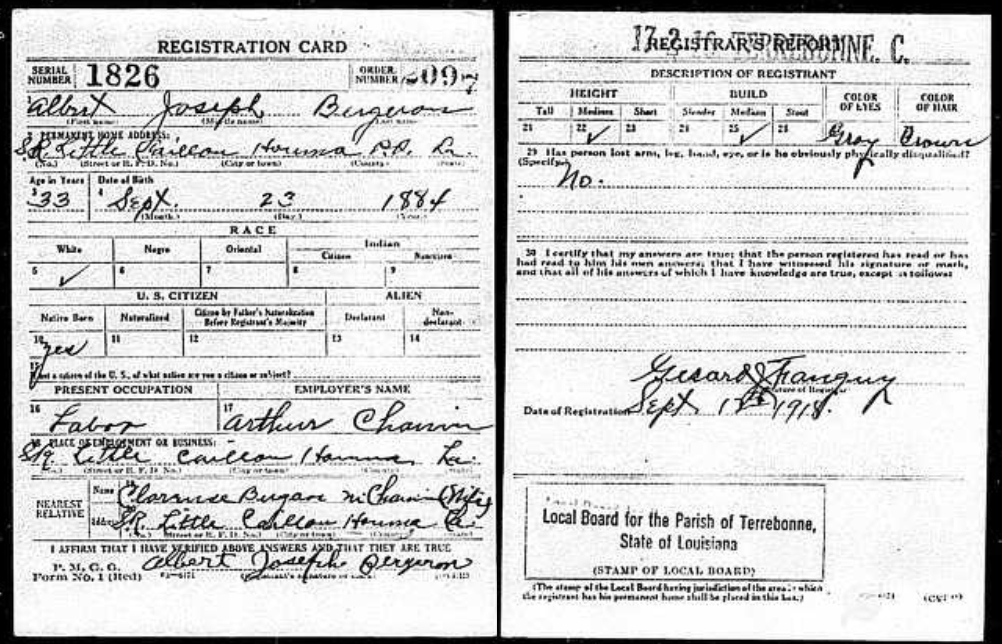 REGISTRATION CARD
SERIAL NUMBER 1826
ORDER NUMBER 2097
Albert Joseph Bergeron
(First name) (Middle name) (Last name)
PERMANENT HOME ADDRESS:
Little Caillou Houma La.
(No.) (Street or R. F. D. No.) (City or town) (County) (State)
Age in Years Date of Birth
33 Sept. 23 1884
(Month.) (Day.) (Year.)
RACE
White Negro Oriental Indian
Citizen Noncitizen
5 ✓ 6 7 8 9
U. S. CITIZEN ALIEN
Native Born Naturalized Citizen by Father's Naturalization Before Registrant's Majority Declarant Non-declarant
10 yes 11 12 13 14
If not a citizen of the U. S., of what nation are you a citizen or subject?
PRESENT OCCUPATION EMPLOYER'S NAME
16 Labor 17 Arthur
PLACE OF EMPLOYMENT OR BUSINESS:
Little Caillou Houma La.
(No.) (Street or R. F. D. No.) (City or town) (County) (State)
NEAREST RELATIVE
Name (Wife)
Address Little Caillou Houma La.
(No.) (Street or R. F. D. No.) (City or town) (County) (State)
I AFFIRM THAT I HAVE VERIFIED ABOVE ANSWERS AND THAT THEY ARE TRUE
P. M. G. O.
Form No. 1 (Red)
Albert Joseph Bergeron
REGISTRAR'S REPORT
TERREBONNE. C.
DESCRIPTION OF REGISTRANT
HEIGHT BUILD COLOR OF EYES COLOR OF HAIR
Tall Medium Short Slender Medium Stout
21 22 ✓ 23 24 25 ✓ 26 Gray Brown
29 Has person lost arm, leg, hand, eye, or is he obviously physically disqualified?
(Specify.)
No.
30 I certify that my answers are true; that the person registered has read or has
had read to him his own answers; that I have witnessed his signature or mark,
and that all of his answers of which I have knowledge are true, except as follows:
Date of Registration Sept 12 1918.
Local Board for the Parish of Terrebonne,
State of Louisiana
(STAMP OF LOCAL BOARD)
(The stamp of the Local Board having jurisdiction of the area in which
the registrant has his permanent home shall be placed in this box.)
(OVER)